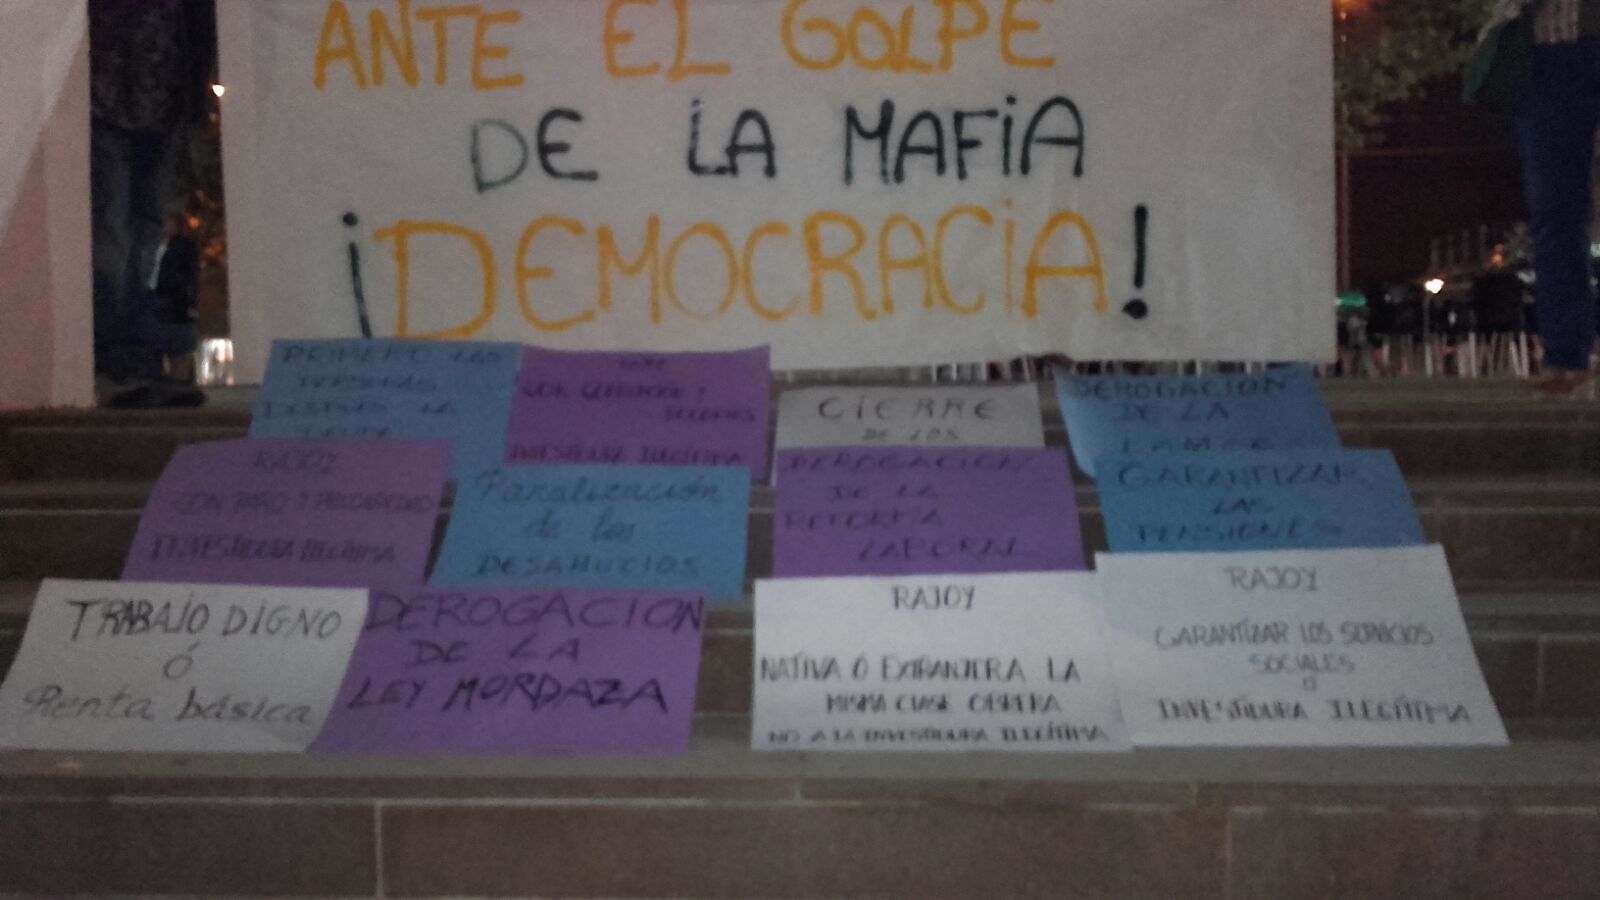 ANTE EL GOLPE
DE LA MAFIA
¡DEMOCRACIA!
PRIMERO LAS
PERSONAS
DESPUÉS LA
INVESTIDURA ILEGÍTIMA
CIERRE
DE LOS
DEROGACION
DE LA
RAJOY
CON PARO Y PRECARIEDAD
INVESTIDURA ILEGÍTIMA
Paralización
de los
DESAHUCIOS
DEROGACION
DE LA
REFORMA
LABORAL
GARANTIZAR
LAS
PENSIONES
TRABAJO DIGNO
Ó
Renta básica
DEROGACION
DE LA
LEY MORDAZA
RAJOY
NATIVA Ó EXTRANJERA LA
MISMA CLASE OBRERA
NO A LA INVESTIDURA ILEGÍTIMA
RAJOY
GARANTIZAR LOS SERVICIOS
SOCIALES
O
INVESTIDURA ILEGÍTIMA